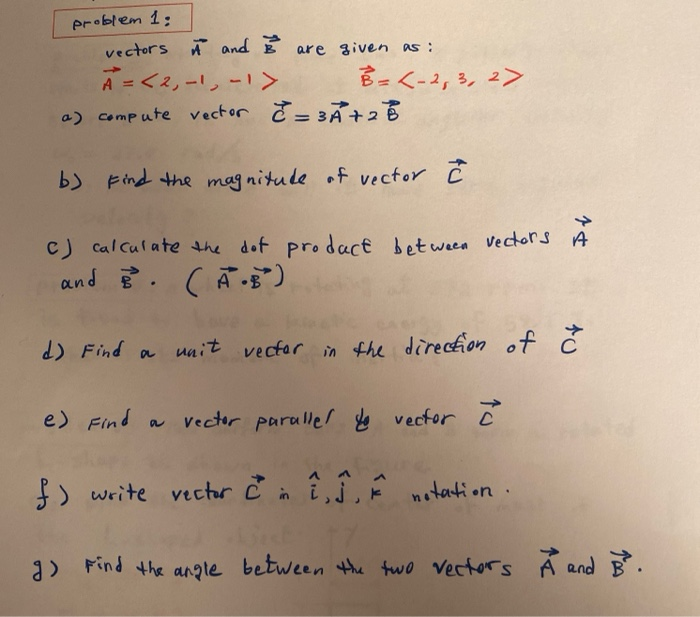 problem 1:
vectors A⃗ and B⃗ are given as:
A⃗ = <2, -1, -1> B⃗ = <-2, 3, 2>
a) compute vector C⃗ = 3A⃗ + 2B⃗
b) Find the magnitude of vector C⃗
c) calculate the dot product between vectors A⃗
and B⃗. (A⃗•B⃗)
d) Find a unit vector in the direction of C⃗
e) Find a vector parallel to vector C⃗
f) write vector C⃗ in î, ĵ, k̂ notation.
g) Find the angle between the two vectors A⃗ and B⃗.